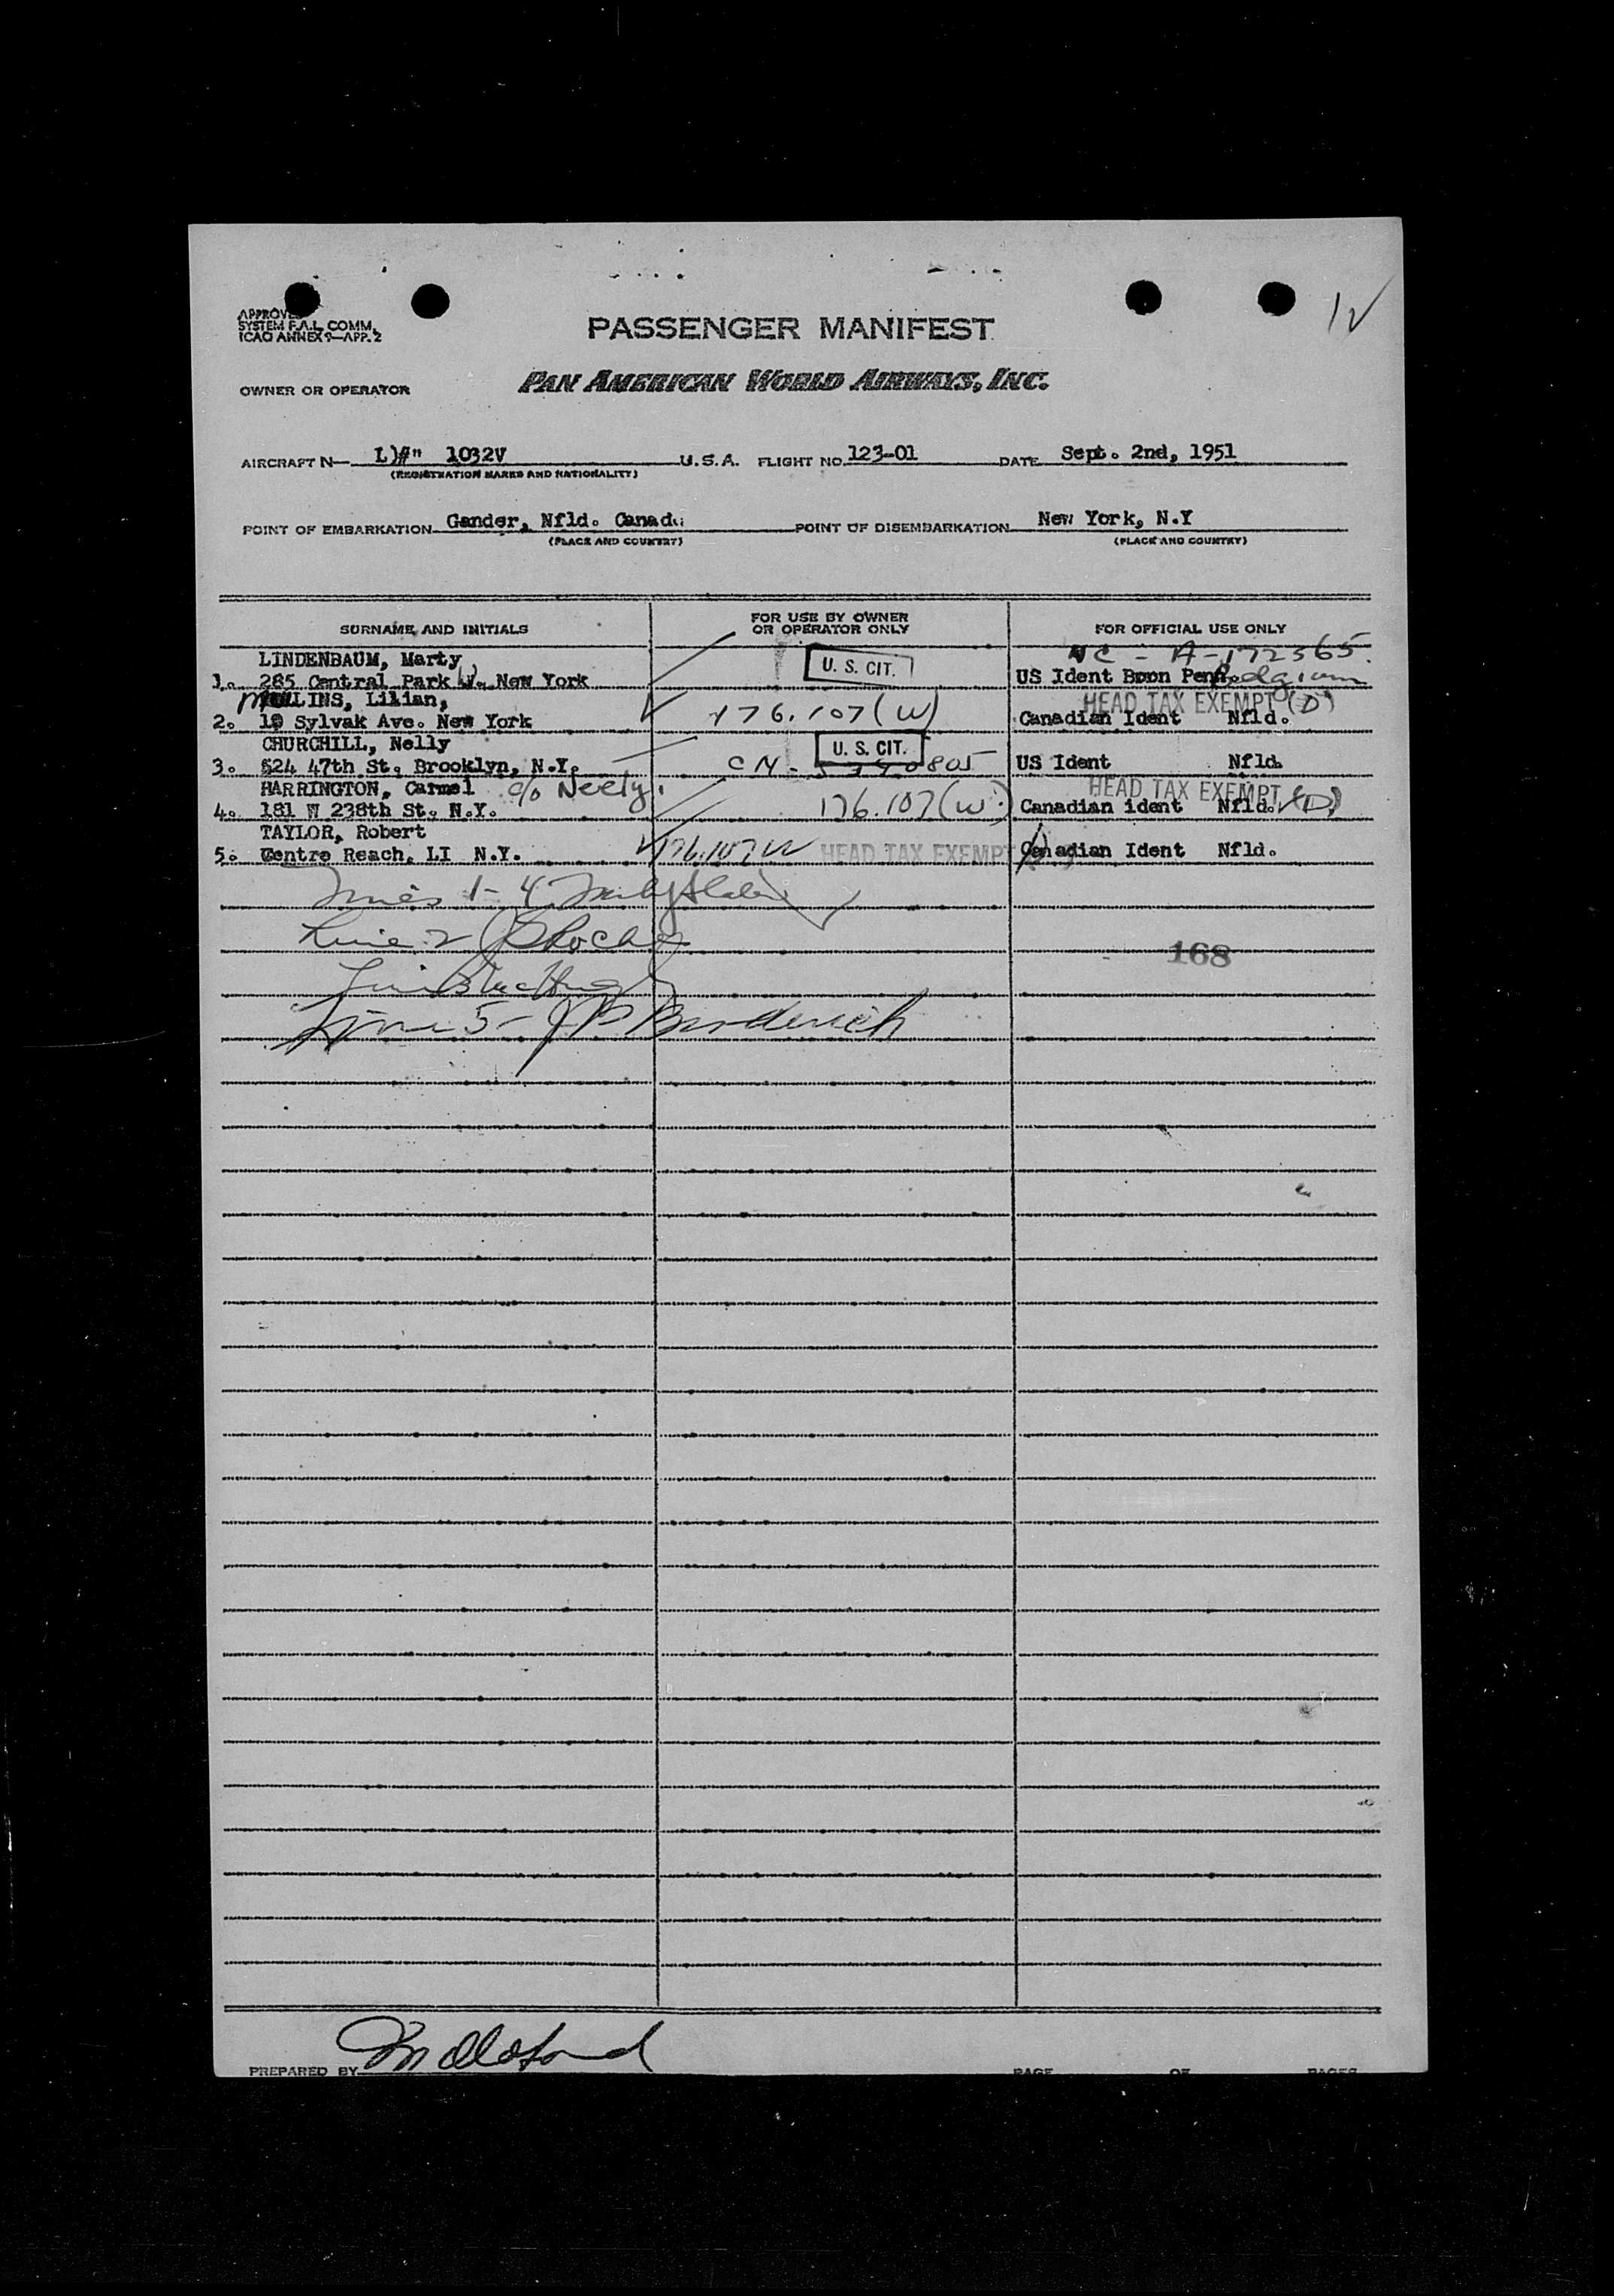 APPROVED
SYSTEM F.A.L. COMM.
ICAO ANNEX 9—APP. 2
1
PASSENGER MANIFEST
OWNER OR OPERATOR PAN AMERICAN WORLD AIRWAYS, INC.
AIRCRAFT N— L)#" 1032V U.S.A. FLIGHT NO. 123-01 DATE Sept. 2nd, 1951
(REGISTRATION MARKS AND NATIONALITY)
POINT OF EMBARKATION Gander, Nfld. Canada POINT OF DISEMBARKATION New York, N.Y
(PLACE AND COUNTRY) (PLACE AND COUNTRY)
SURNAME AND INITIALS FOR USE BY OWNER OR OPERATOR ONLY FOR OFFICIAL USE ONLY
LINDENBAUM, Marty U. S. CIT. NC - A-172565
1. 285 Central Park W. New York US Ident Born Penn. Belgium
MULLINS, Lilian, HEAD TAX EXEMPT (D)
2. 19 Sylvak Ave. New York 176.107(W) Canadian Ident Nfld.
CHURCHILL, Nelly U. S. CIT.
3. 524 47th St. Brooklyn, N.Y. US Ident Nfld.
HARRINGTON, Carmel c/o Neely. HEAD TAX EXEMPT (D)
4. 181 W 238th St. N.Y. 176.107(W) Canadian ident Nfld.
TAYLOR, Robert
5. Centre Reach, LI N.Y. 176.107 W HEAD TAX EXEMPT Canadian Ident Nfld.
Lines 1-4
Line 2
168
Line 5- J P Broderick
PREPARED BY
PAGE OF PAGES